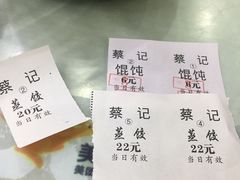 蔡记
②
蒸饺
20元
当日有效
蔡记
②
馄饨
6元
当日有效
蔡记
①
馄饨
8元
当日有效
蔡记
⑤
蒸饺
22元
当日有效
蔡记
④
蒸饺
22元
当日有效